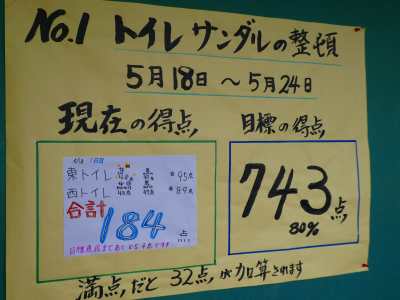 No.1 トイレサンダルの整頓
5月18日 ～5月24日
現在の得点
目標の得点
東トイレ
95点
西トイレ
89点
合計
184点
743点
80%
満点だと 32点が加算されます